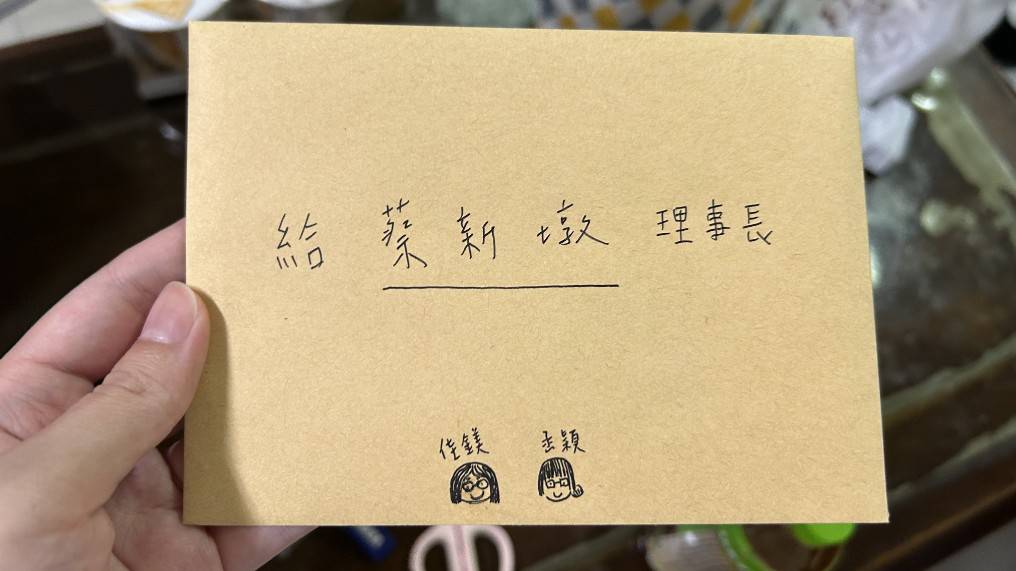 給 蔡新墩 理事長
佳鎂 丞穎